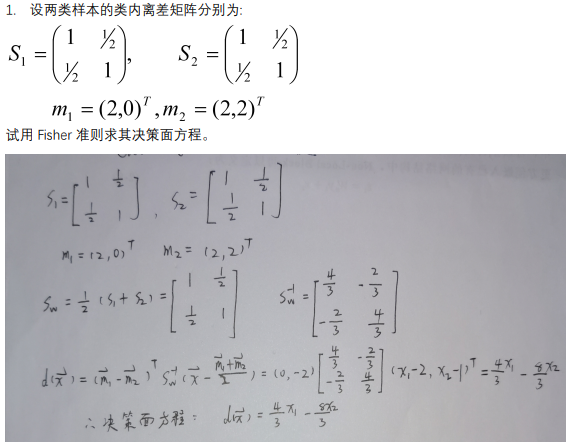 1. 设两类样本的类内离差矩阵分别为:
S₁ = (1 ½; ½ 1), S₂ = (1 ½; ½ 1)
m₁ = (2,0)ᵀ, m₂ = (2,2)ᵀ
试用 Fisher 准则求其决策面方程。
S₁ = [1 ½; ½ 1], S₂ = [1 ½; ½ 1]
m₁ = (2,0)ᵀ m₂ = (2,2)ᵀ
S_w = ½ (S₁ + S₂) = [1 ½; ½ 1] S_w⁻¹ = [4/3 -2/3; -2/3 4/3]
d(x⃗) = (m⃗₁ - m⃗₂)ᵀ S_w⁻¹ (x⃗ - (m⃗₁+m⃗₂)/2) = (0, -2) [4/3 -2/3; -2/3 4/3] (x₁-2, x₂-1)ᵀ = 4x₁/3 - 8x₂/3
∴ 决策面方程: d(x⃗) = 4/3 x₁ - 8x₂/3